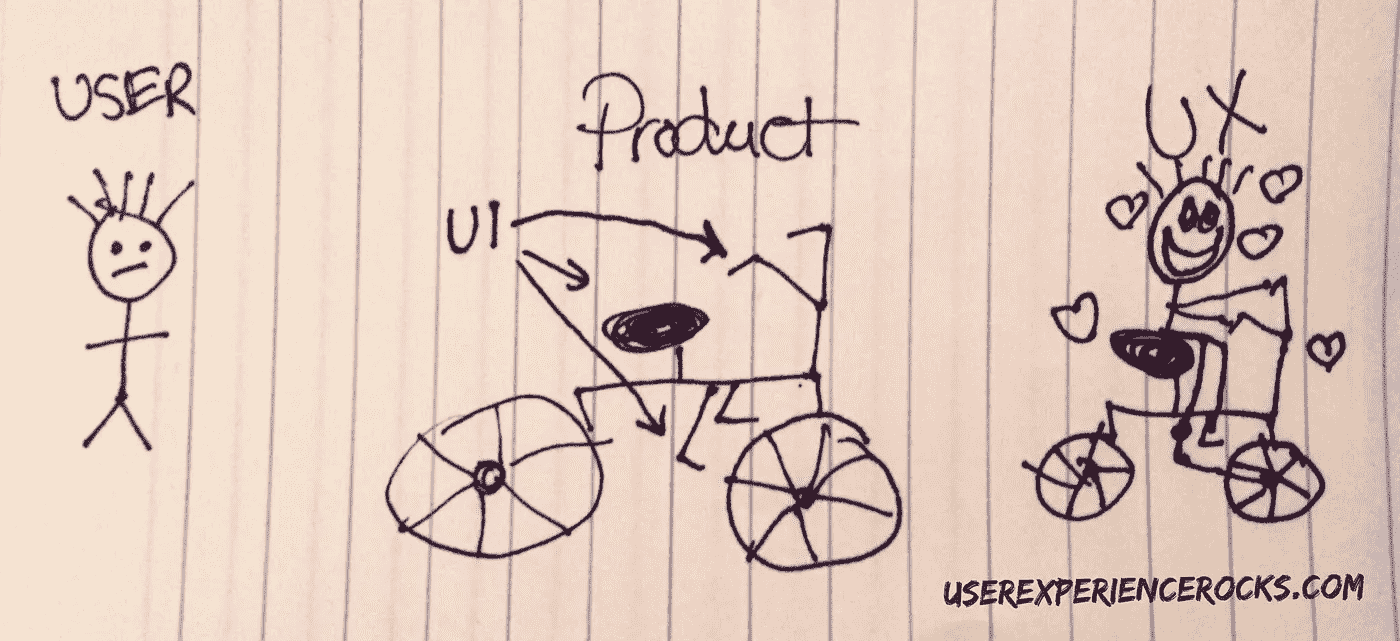 USER
Product
UX
UI
USEREXPERIENCEROCKS.COM